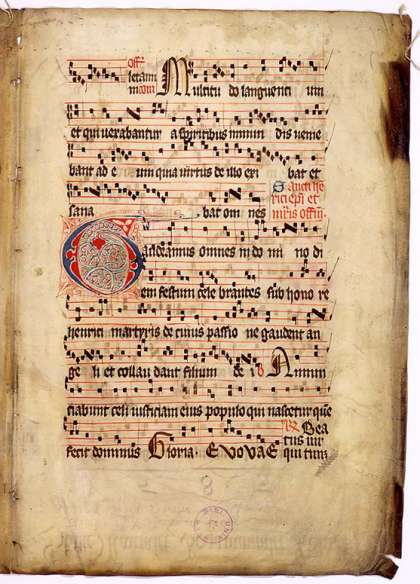 Off
Multitu do languenci um
et qui vexabantur a spiritibus inmun dis venie
bant ad e um quia virtus de illo exi bat et
Sancti he
rici epi et
sana bat om nes mris offin.
Gaudeamus omnes in do mi no di
em festum cele brantes sub hono re
henrici martyris de cuius passio ne gaudent an
ge li et collau dant filium de i Annun
ciabunt celi iusticiam eius populo qui nascetur que
Bea
tus vir
fecit dominus Gloria. EVOVAE qui tim